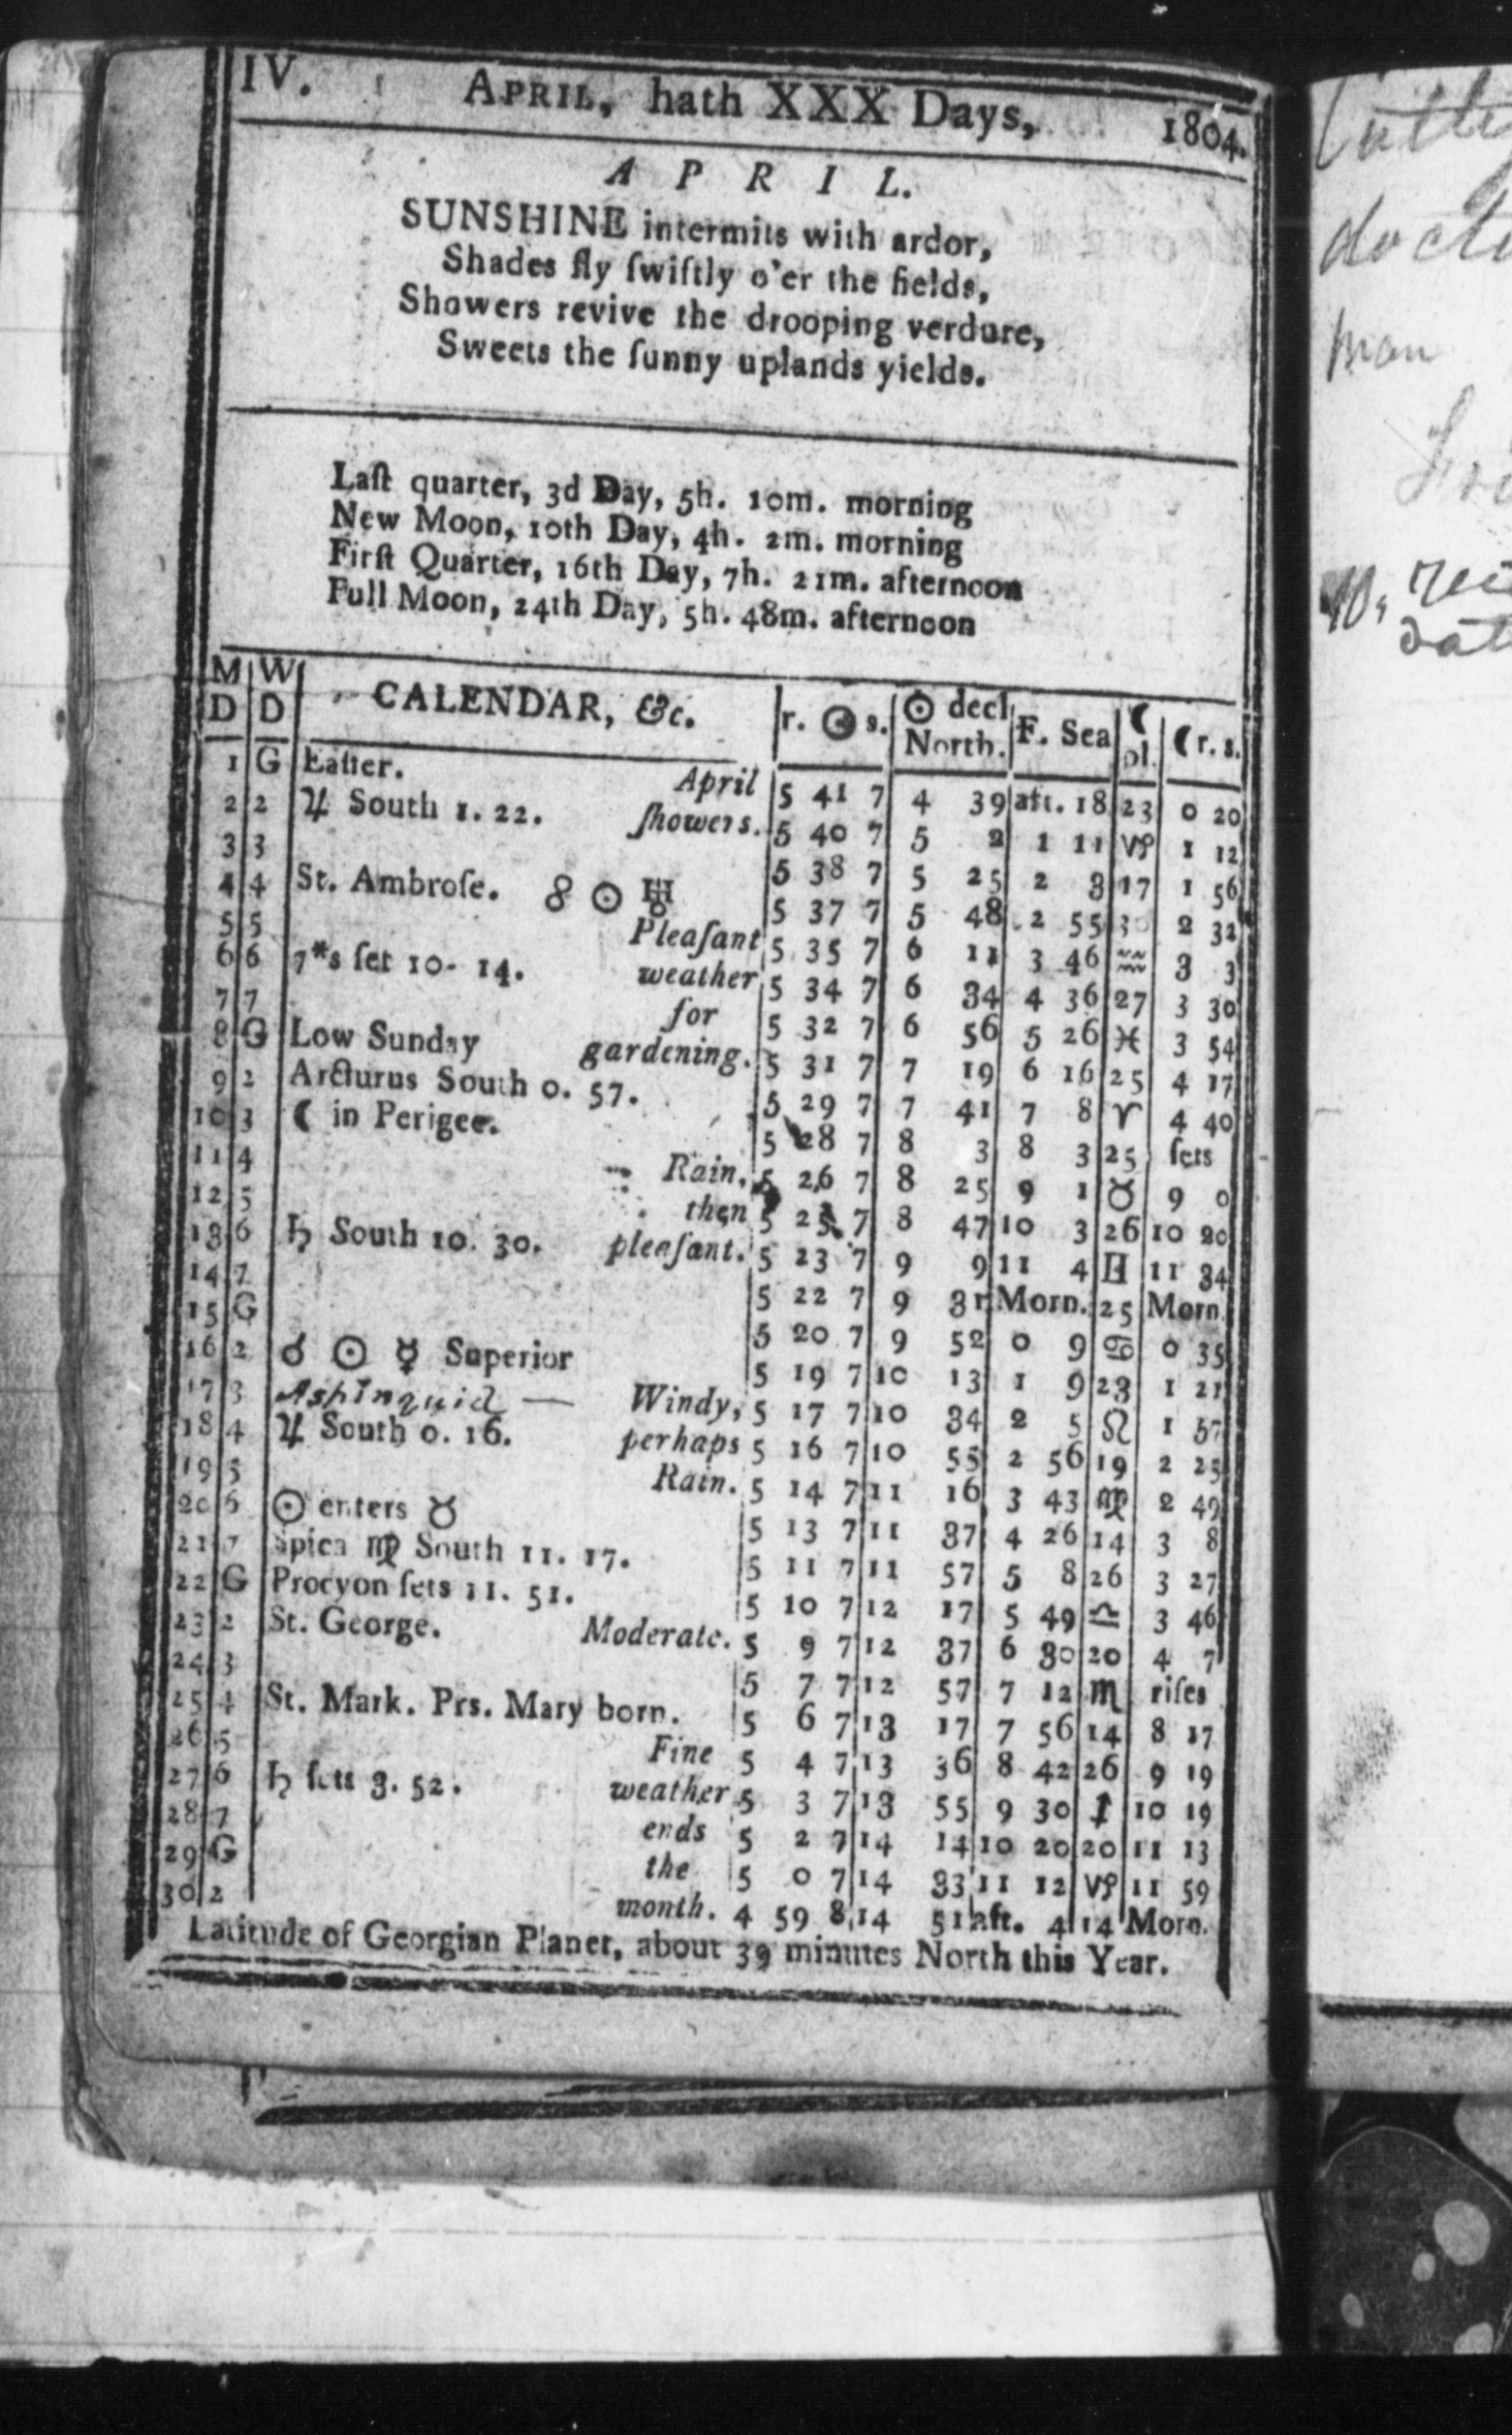 IV. APRIL, hath XXX Days, 1804.
A P R I L.
SUNSHINE intermits with ardor,
Shades fly ſwiftly o'er the fields,
Showers revive the drooping verdure,
Sweets the ſunny uplands yields.
Laſt quarter, 3d Day, 5h. 10m. morning
New Moon, 10th Day, 4h. 2m. morning
Firſt Quarter, 16th Day, 7h. 21m. afternoon
Full Moon, 24th Day, 5h. 48m. afternoon
M D W D CALENDAR, &c. r. ☉ s. ☉ decl North. F. Sea ☾ pl. ☾ r. s.
1 G Eaſter. April 5 41 7 4 39 aft. 18 23 0 20
2 2 ♃ South 1. 22. ſhowers. 5 40 7 5 2 1 11 ♑ 1 12
3 3 5 38 7 5 25 2 3 17 1 56
4 4 St. Ambroſe. ☍ ☉ ♅ 5 37 7 5 48 2 55 30 2 32
5 5 Pleaſant 5 35 7 6 11 3 46 ♒ 3 3
6 6 7*s ſet 10- 14. weather 5 34 7 6 34 4 36 27 3 30
7 7 for 5 32 7 6 56 5 26 ♓ 3 54
8 G Low Sunday gardening. 5 31 7 7 19 6 16 25 4 17
9 2 Arcturus South 0. 57. 5 29 7 7 41 7 8 ♈ 4 40
10 3 ☾ in Perigee. 5 28 7 8 3 8 3 25 ſets
11 4 Rain, 5 26 7 8 25 9 1 ♉ 9 0
12 5 then 5 25 7 8 47 10 3 26 10 20
13 6 ♄ South 10. 30. pleaſant. 5 23 7 9 9 11 4 ♊ 11 34
14 7 5 22 7 9 31 Morn. 25 Morn
15 G 5 20 7 9 52 0 9 ♋ 0 35
16 2 ☌ ☉ ☿ Superior 5 19 7 10 13 1 9 23 1 21
17 3 Ashinquid — Windy, 5 17 7 10 34 2 5 ♌ 1 57
18 4 ♃ South 0. 16. perhaps 5 16 7 10 55 2 56 19 2 25
19 5 Rain. 5 14 7 11 16 3 43 ♍ 2 49
20 6 ☉ enters ♉ 5 13 7 11 37 4 26 14 3 8
21 7 Spica ♍ South 11. 17. 5 11 7 11 57 5 8 26 3 27
22 G Procyon ſets 11. 51. 5 10 7 12 17 5 49 ♎ 3 46
23 2 St. George. Moderate. 5 9 7 12 37 6 30 20 4 7
24 3 5 7 7 12 57 7 12 ♏ riſes
25 4 St. Mark. Prs. Mary born. 5 6 7 13 17 7 56 14 8 17
26 5 Fine 5 4 7 13 36 8 42 26 9 19
27 6 ♄ ſets 3. 52. weather 5 3 7 13 55 9 30 ♐ 10 19
28 7 ends 5 2 7 14 14 10 20 20 11 13
29 G the 5 0 7 14 33 11 12 ♑ 11 59
30 2 month. 4 59 8 14 51 aft. 4 14 Morn.
Latitude of Georgian Planet, about 39 minutes North this Year.
man